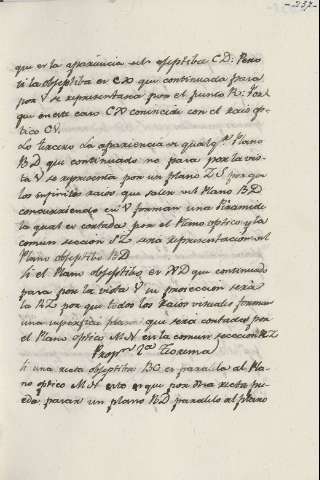 - 237 -
que es la apariencia del obsepttiba CD. Pero
si la obseptiba es CX que continuada pasa
por V se representará por el punto R. Por
que en este caso CX coincide con el raio op-
tico CV.
Lo tercero la apariencia de qualqr. Plano
BD que continuado no pasa por la vis-
ta V se representa por un plano ZS por que
los infinitos raios que salen del Plano BD
concurriendo en V forman una Piramide
la qual es cortada por el Plano optico y la
comun seccion SZ sera representacion del
Plano obseptibo BD
Si el Plano obseptibo es XD que continuado
pasa por la vista V su proieccion será
la RZ por que todos los raios visuales forman
una superficie plana que será cortada por
el Plano optico MN en la comun seccion RZ
Propn. 1a. Teorema
Si una recta obseptiba BC es paralela al Pla-
no optico MN esto es que por dha recta pue-
da pasar un plano BD paralelo al plano